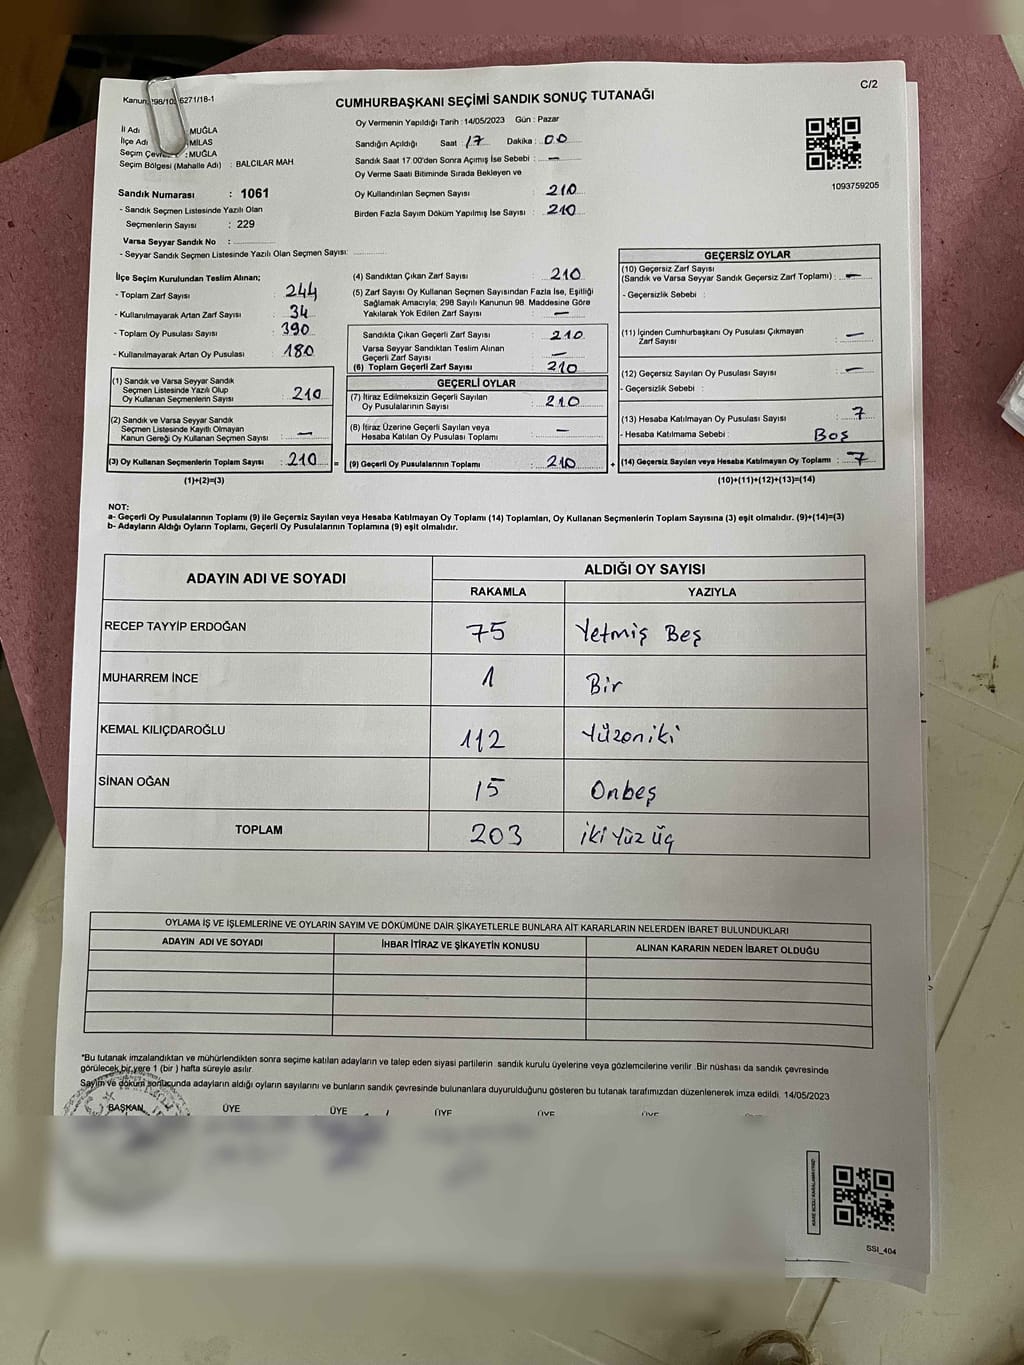 C/2
Kanun: 298/103 6271/18-1
CUMHURBAŞKANI SEÇİMİ SANDIK SONUÇ TUTANAĞI
İl Adı : MUĞLA
İlçe Adı : MİLAS
Seçim Çevresi : MUĞLA
Seçim Bölgesi (Mahalle Adı) : BALCILAR MAH
Sandık Numarası : 1061
- Sandık Seçmen Listesinde Yazılı Olan
Seçmenlerin Sayısı : 229
Varsa Seyyar Sandık No :
- Seyyar Sandık Seçmen Listesinde Yazılı Olan Seçmen Sayısı:
Oy Vermenin Yapıldığı Tarih : 14/05/2023 Gün : Pazar
Sandığın Açıldığı Saat : 17 Dakika : 00
Sandık Saat 17.00'den Sonra Açımış İse Sebebi : —
Oy Verme Saati Bitiminde Sırada Bekleyen ve
Oy Kullandırılan Seçmen Sayısı : 210
Birden Fazla Sayım Döküm Yapılmış İse Sayısı : 210
1093759205
İlçe Seçim Kurulundan Teslim Alınan;
- Toplam Zarf Sayısı : 244
- Kullanılmayarak Artan Zarf Sayısı : 34
- Toplam Oy Pusulası Sayısı : 390
- Kullanılmayarak Artan Oy Pusulası : 180
(1) Sandık ve Varsa Seyyar Sandık
Seçmen Listesinde Yazılı Olup
Oy Kullanan Seçmenlerin Sayısı : 210
(2) Sandık ve Varsa Seyyar Sandık
Seçmen Listesinde Kayıtlı Olmayan
Kanun Gereği Oy Kullanan Seçmen Sayısı : —
(3) Oy Kullanan Seçmenlerin Toplam Sayısı : 210 =
(1)+(2)=(3)
(4) Sandıktan Çıkan Zarf Sayısı : 210
(5) Zarf Sayısı Oy Kullanan Seçmen Sayısından Fazla İse, Eşitliği
Sağlamak Amacıyla, 298 Sayılı Kanunun 98. Maddesine Göre
Yakılarak Yok Edilen Zarf Sayısı : —
Sandıkla Çıkan Geçerli Zarf Sayısı : 210
Varsa Seyyar Sandıktan Teslim Alınan
Geçerli Zarf Sayısı : —
(6) Toplam Geçerli Zarf Sayısı : 210
GEÇERLİ OYLAR
(7) İtiraz Edilmeksizin Geçerli Sayılan
Oy Pusulalarının Sayısı : 210
(8) İtiraz Üzerine Geçerli Sayılan veya
Hesaba Katılan Oy Pusulası Toplamı : —
(9) Geçerli Oy Pusulalarının Toplamı : 210 +
GEÇERSİZ OYLAR
(10) Geçersiz Zarf Sayısı
(Sandık ve Varsa Seyyar Sandık Geçersiz Zarf Toplamı) : —
- Geçersizlik Sebebi :
(11) İçinden Cumhurbaşkanı Oy Pusulası Çıkmayan
Zarf Sayısı : —
(12) Geçersiz Sayılan Oy Pusulası Sayısı : —
- Geçersizlik Sebebi :
(13) Hesaba Katılmayan Oy Pusulası Sayısı : 7
- Hesaba Katılmama Sebebi : Boş
(14) Geçersiz Sayılan veya Hesaba Katılmayan Oy Toplamı : 7
(10)+(11)+(12)+(13)=(14)
NOT:
a- Geçerli Oy Pusulalarının Toplamı (9) ile Geçersiz Sayılan veya Hesaba Katılmayan Oy Toplamı (14) Toplamları, Oy Kullanan Seçmenlerin Toplam Sayısına (3) eşit olmalıdır. (9)+(14)=(3)
b- Adayların Aldığı Oyların Toplamı, Geçerli Oy Pusulalarının Toplamına (9) eşit olmalıdır.
ADAYIN ADI VE SOYADI ALDIĞI OY SAYISI
RAKAMLA YAZIYLA
RECEP TAYYİP ERDOĞAN 75 Yetmiş Beş
MUHARREM İNCE 1 Bir
KEMAL KILIÇDAROĞLU 112 Yüzoniki
SİNAN OĞAN 15 Onbeş
TOPLAM 203 İki Yüz Üç
OYLAMA İŞ VE İŞLEMLERİNE VE OYLARIN SAYIM VE DÖKÜMÜNE DAİR ŞİKAYETLERLE BUNLARA AİT KARARLARIN NELERDEN İBARET BULUNDUKLARI
ADAYIN ADI VE SOYADI İHBAR İTİRAZ VE ŞİKAYETİN KONUSU ALINAN KARARIN NEDEN İBARET OLDUĞU
*Bu tutanak imzalandıktan ve mühürlendikten sonra seçime katılan adayların ve talep eden siyasi partilerin sandık kurulu üyelerine veya gözlemcilerine verilir. Bir nüshası da sandık çevresinde
görülecek bir yere 1 (bir ) hafta süreyle asılır.
Sayım ve döküm sonucunda adayların aldığı oyların sayılarını ve bunların sandık çevresinde bulunanlara duyurulduğunu gösteren bu tutanak tarafımızdan düzenlenerek imza edildi. 14/05/2023
BAŞKAN ÜYE ÜYE ÜYE ÜYE ÜYE
SSI_404